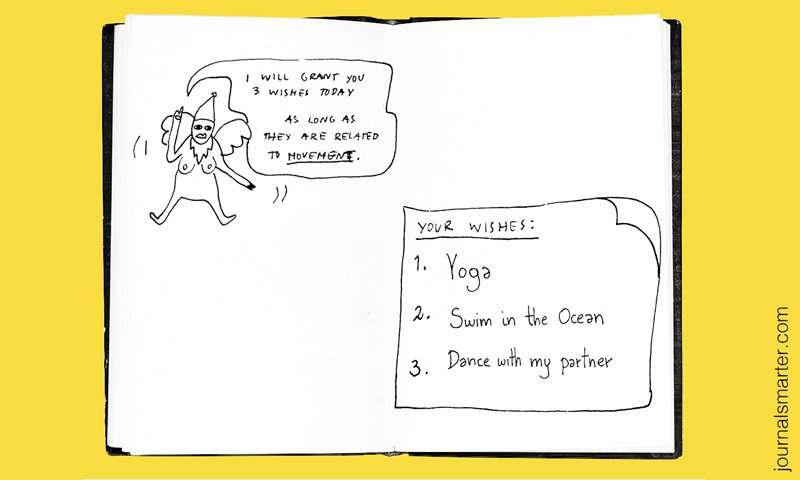 I WILL GRANT YOU
3 WISHES TODAY
AS LONG AS
THEY ARE RELATED
TO MOVEMENT.
YOUR WISHES:
1. Yoga
2. Swim in the Ocean
3. Dance with my partner
journalsmarter.com